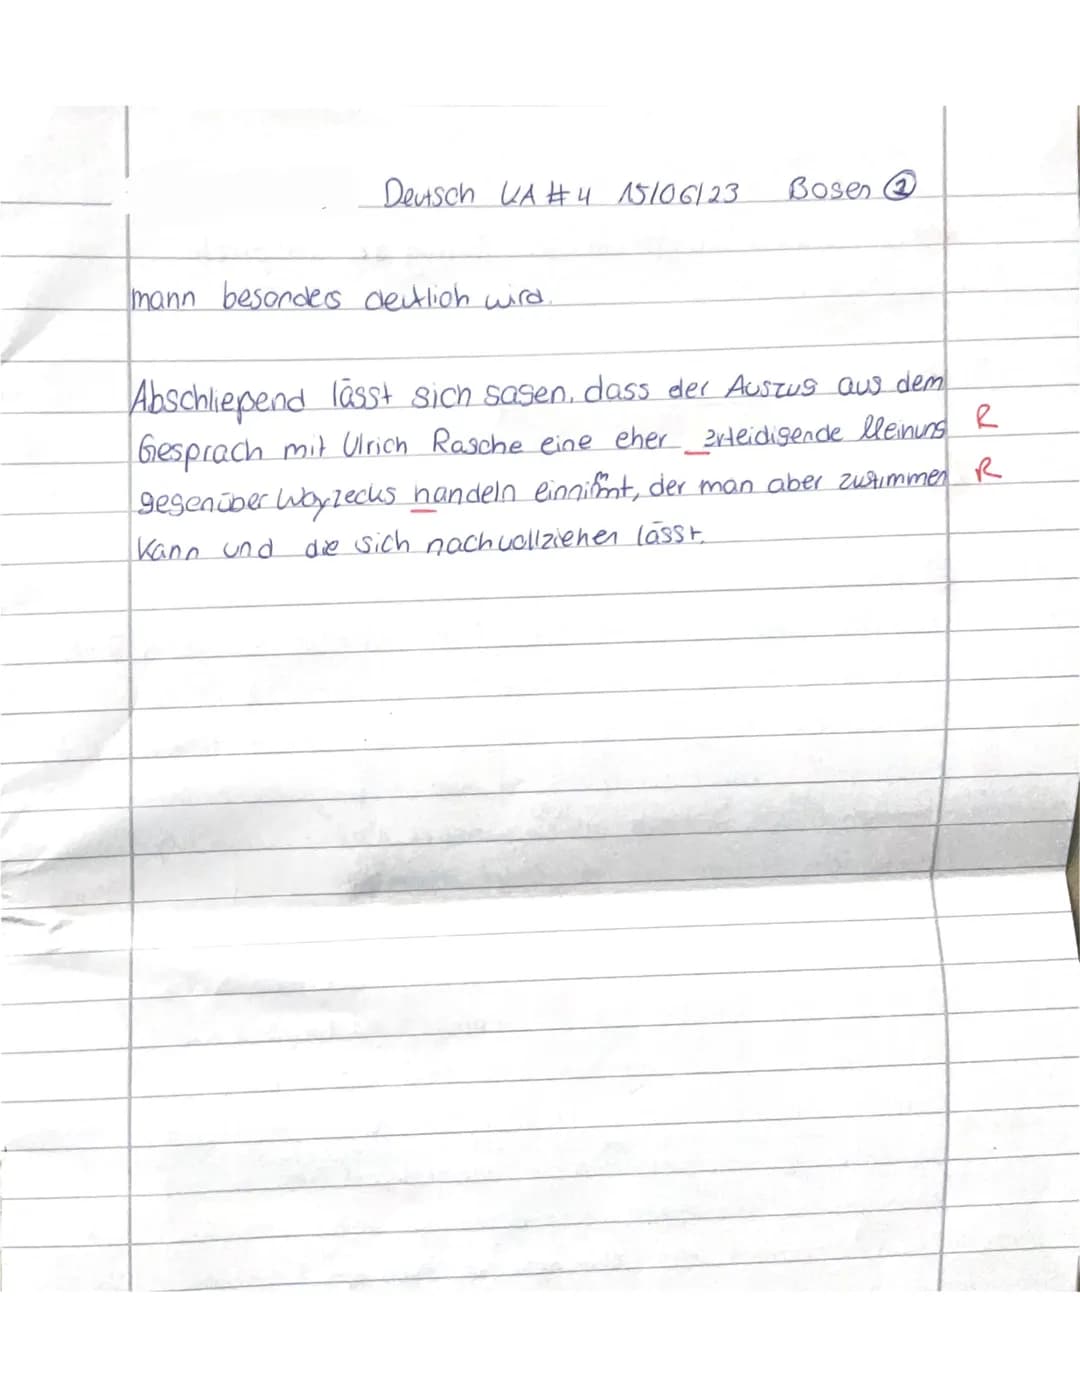 Deutsch KA #4 15/06/23 Bosen 2
mann besonders deutlich wird.
Abschließend lässt sich sagen, dass der Auszug aus dem
Gespräch mit Ulrich Rasche eine eher erteidigende Meinung R
gegenüber Woyzecks handeln einnimmt, der man aber zustimmen R
kann und die sich nachvollziehen lässt.